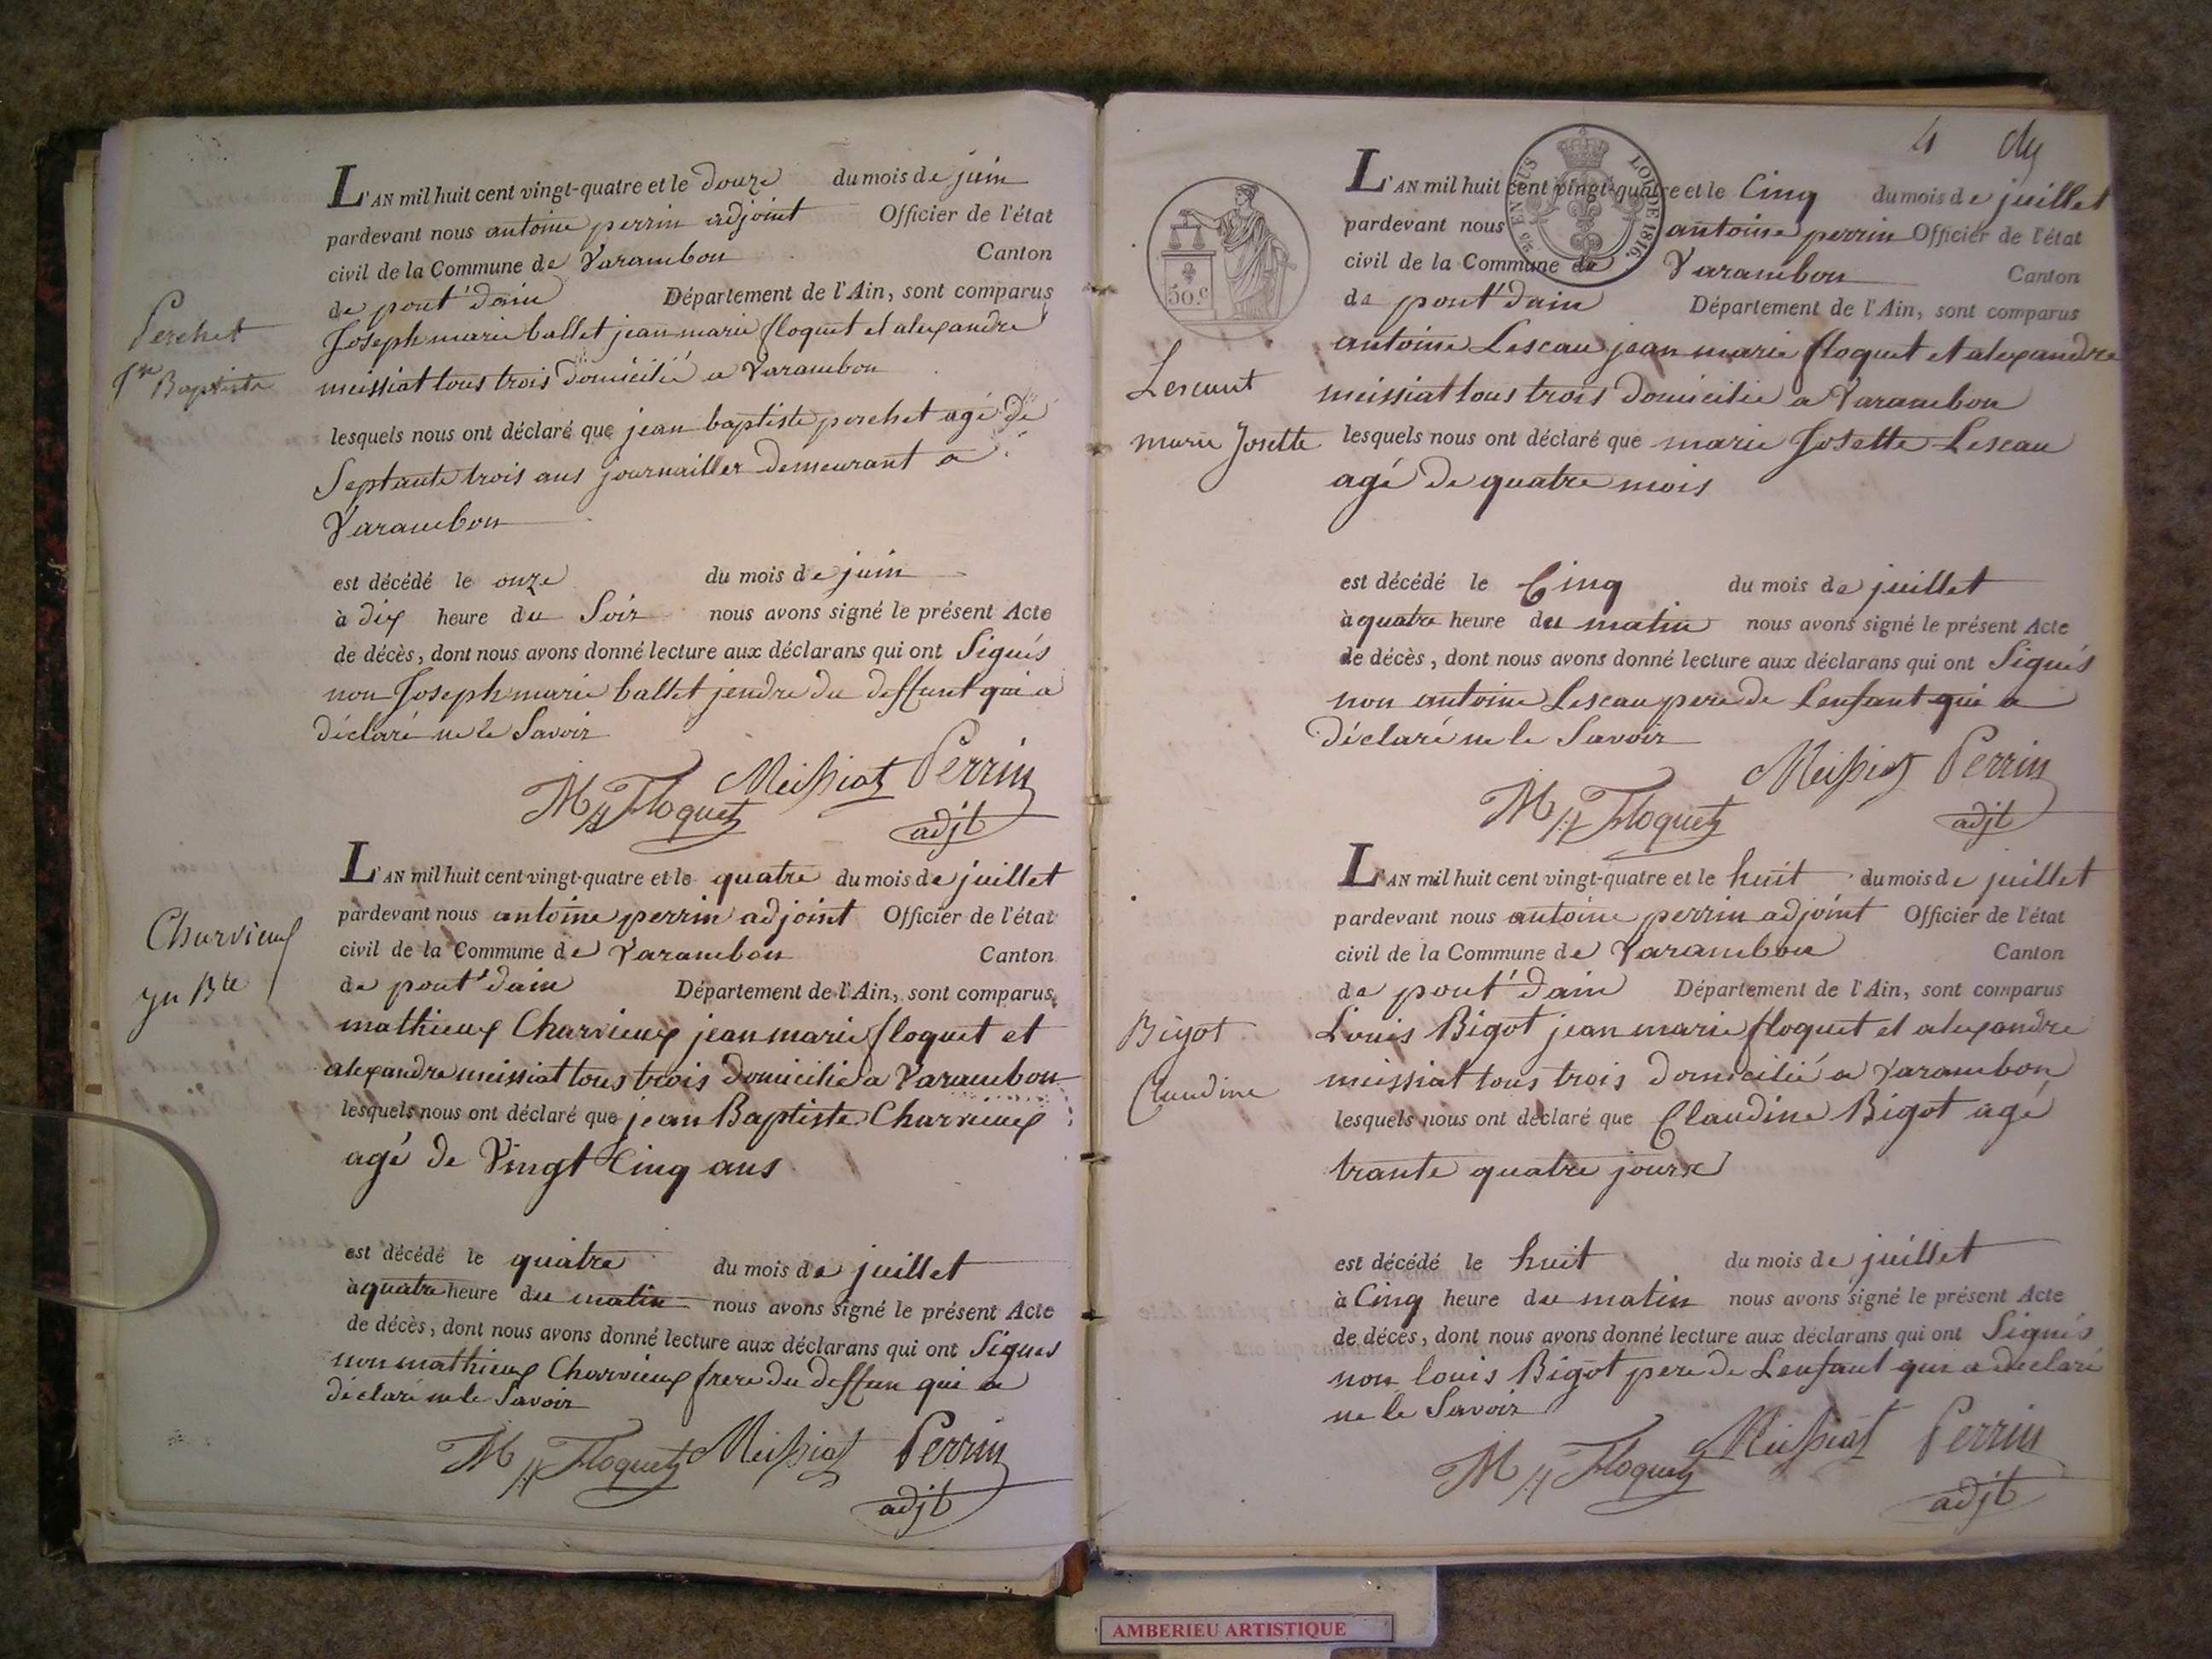 Perchet
Jn Baptiste
L'AN mil huit cent vingt-quatre et le douze du mois de juin
pardevant nous antoine perrin adjoint Officier de l'état
civil de la Commune de Varambon Canton
de pont d'ain Département de l'Ain, sont comparus
Joseph marie ballet jean marie floquet et alexandre
meissiat tous trois domicilié a Varambon
lesquels nous ont déclaré que jean baptiste perchet agé de
Septante trois ans journailler demeurant a
Varambon
est décédé le onze du mois de juin
à dix heure du Soir nous avons signé le présent Acte
de décès, dont nous avons donné lecture aux déclarans qui ont Signés
non Joseph marie ballet jendre du deffunt qui a
déclaré ne le Savoir
M Floquet Meissiat Perrin
adjt
Charvieux
jn Bte
L'AN mil huit cent vingt-quatre et le quatre du mois de juillet
pardevant nous antoine perrin adjoint Officier de l'état
civil de la Commune de Varambon Canton
de pont d'ain Département de l'Ain, sont comparus
mathieux Charvieux jean marie floquet et
alexandre meissiat tous trois domicilié a Varambon
lesquels nous ont déclaré que jean Baptiste Charvieux
agé de Vingt Cinq ans
est décédé le quatre du mois de juillet
à quatre heure du matin nous avons signé le présent Acte
de décès, dont nous avons donné lecture aux déclarans qui ont Signés
non mathieux Charvieux frere du deffun qui a
déclaré ne le Savoir
M Floquet Meissiat Perrin
adjt
4
50.c
LOI DE 1816.
Lescaut
marie Josette
L'AN mil huit cent vingt-quatre et le Cinq du mois de juillet
pardevant nous antoine perrin Officier de l'état
civil de la Commune de Varambon Canton
de pont d'ain Département de l'Ain, sont comparus
antoine Lescau jean marie floquet et alexandre
meissiat tous trois domicilié a Varambon
lesquels nous ont déclaré que marie Josette Lescau
agé de quatre mois
est décédé le Cinq du mois de juillet
à quatre heure du matin nous avons signé le présent Acte
de décès, dont nous avons donné lecture aux déclarans qui ont Signés
non antoine Lescau pere de Lenfant qui a
déclaré ne le Savoir
M Floquet Meissiat Perrin
adjt
Bigot
Claudine
L'AN mil huit cent vingt-quatre et le huit du mois de juillet
pardevant nous antoine perrin adjoint Officier de l'état
civil de la Commune de Varambon Canton
de pont d'ain Département de l'Ain, sont comparus
Louis Bigot jean marie floquet et alexandre
meissiat tous trois domicilié a Varambon
lesquels nous ont déclaré que Claudine Bigot agé
trante quatre jours
est décédé le huit du mois de juillet
à Cinq heure du matin nous avons signé le présent Acte
de décès, dont nous avons donné lecture aux déclarans qui ont Signés
non louis Bigot pere de Lenfant qui a déclaré
ne le Savoir
M Floquet Meissiat Perrin
adjt
AMBERIEU ARTISTIQUE